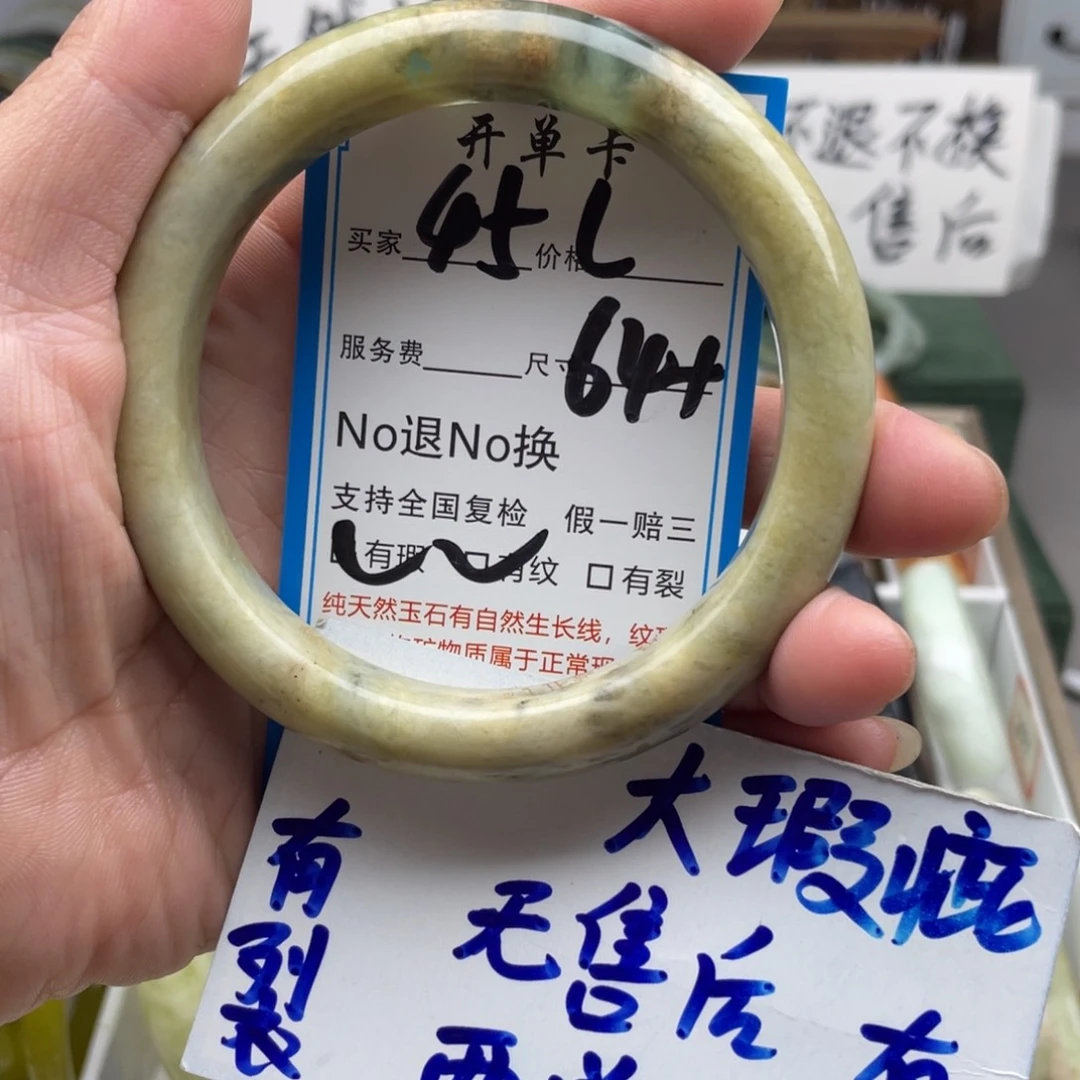 开单卡
买家 45 价格 L
服务费 尺寸 64++
No退No换
支持全国复检 假一赔三
有瑕 有纹 口有裂
纯天然玉石有自然生长线，纹
矿物质属于正常现
不退不换
售后
大瑕疵
有裂
无售后
有